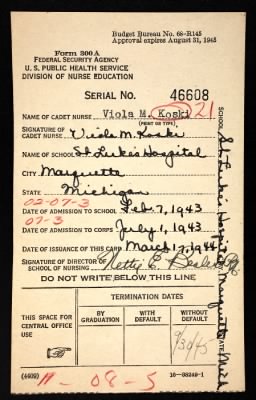 Budget Bureau No. 68-R145
Approval expires August 31, 1945
Form 300A
FEDERAL SECURITY AGENCY
U. S. PUBLIC HEALTH SERVICE
DIVISION OF NURSE EDUCATION
SERIAL NO. 46608
NAME OF CADET NURSE Viola M. Koski 21
(PRINT OR TYPE)
SIGNATURE OF CADET NURSE Viola M. Koski
NAME OF SCHOOL St. Luke's Hospital
CITY Marquette
STATE Michigan
02-07-3
DATE OF ADMISSION TO SCHOOL Feb 7, 1943
07-3
DATE OF ADMISSION TO CORPS July 1, 1943
DATE OF ISSUANCE OF THIS CARD March 17, 1944
SIGNATURE OF DIRECTOR OF SCHOOL OF NURSING Netty E.
DO NOT WRITE BELOW THIS LINE
THIS SPACE FOR CENTRAL OFFICE USE
TERMINATION DATES
BY GRADUATION
WITH DEFAULT
WITHOUT DEFAULT
9/30/45
(4409)
16-38249-1
11-08-5
SCHOOL St. Luke's Hospital Marquette STATE Mich